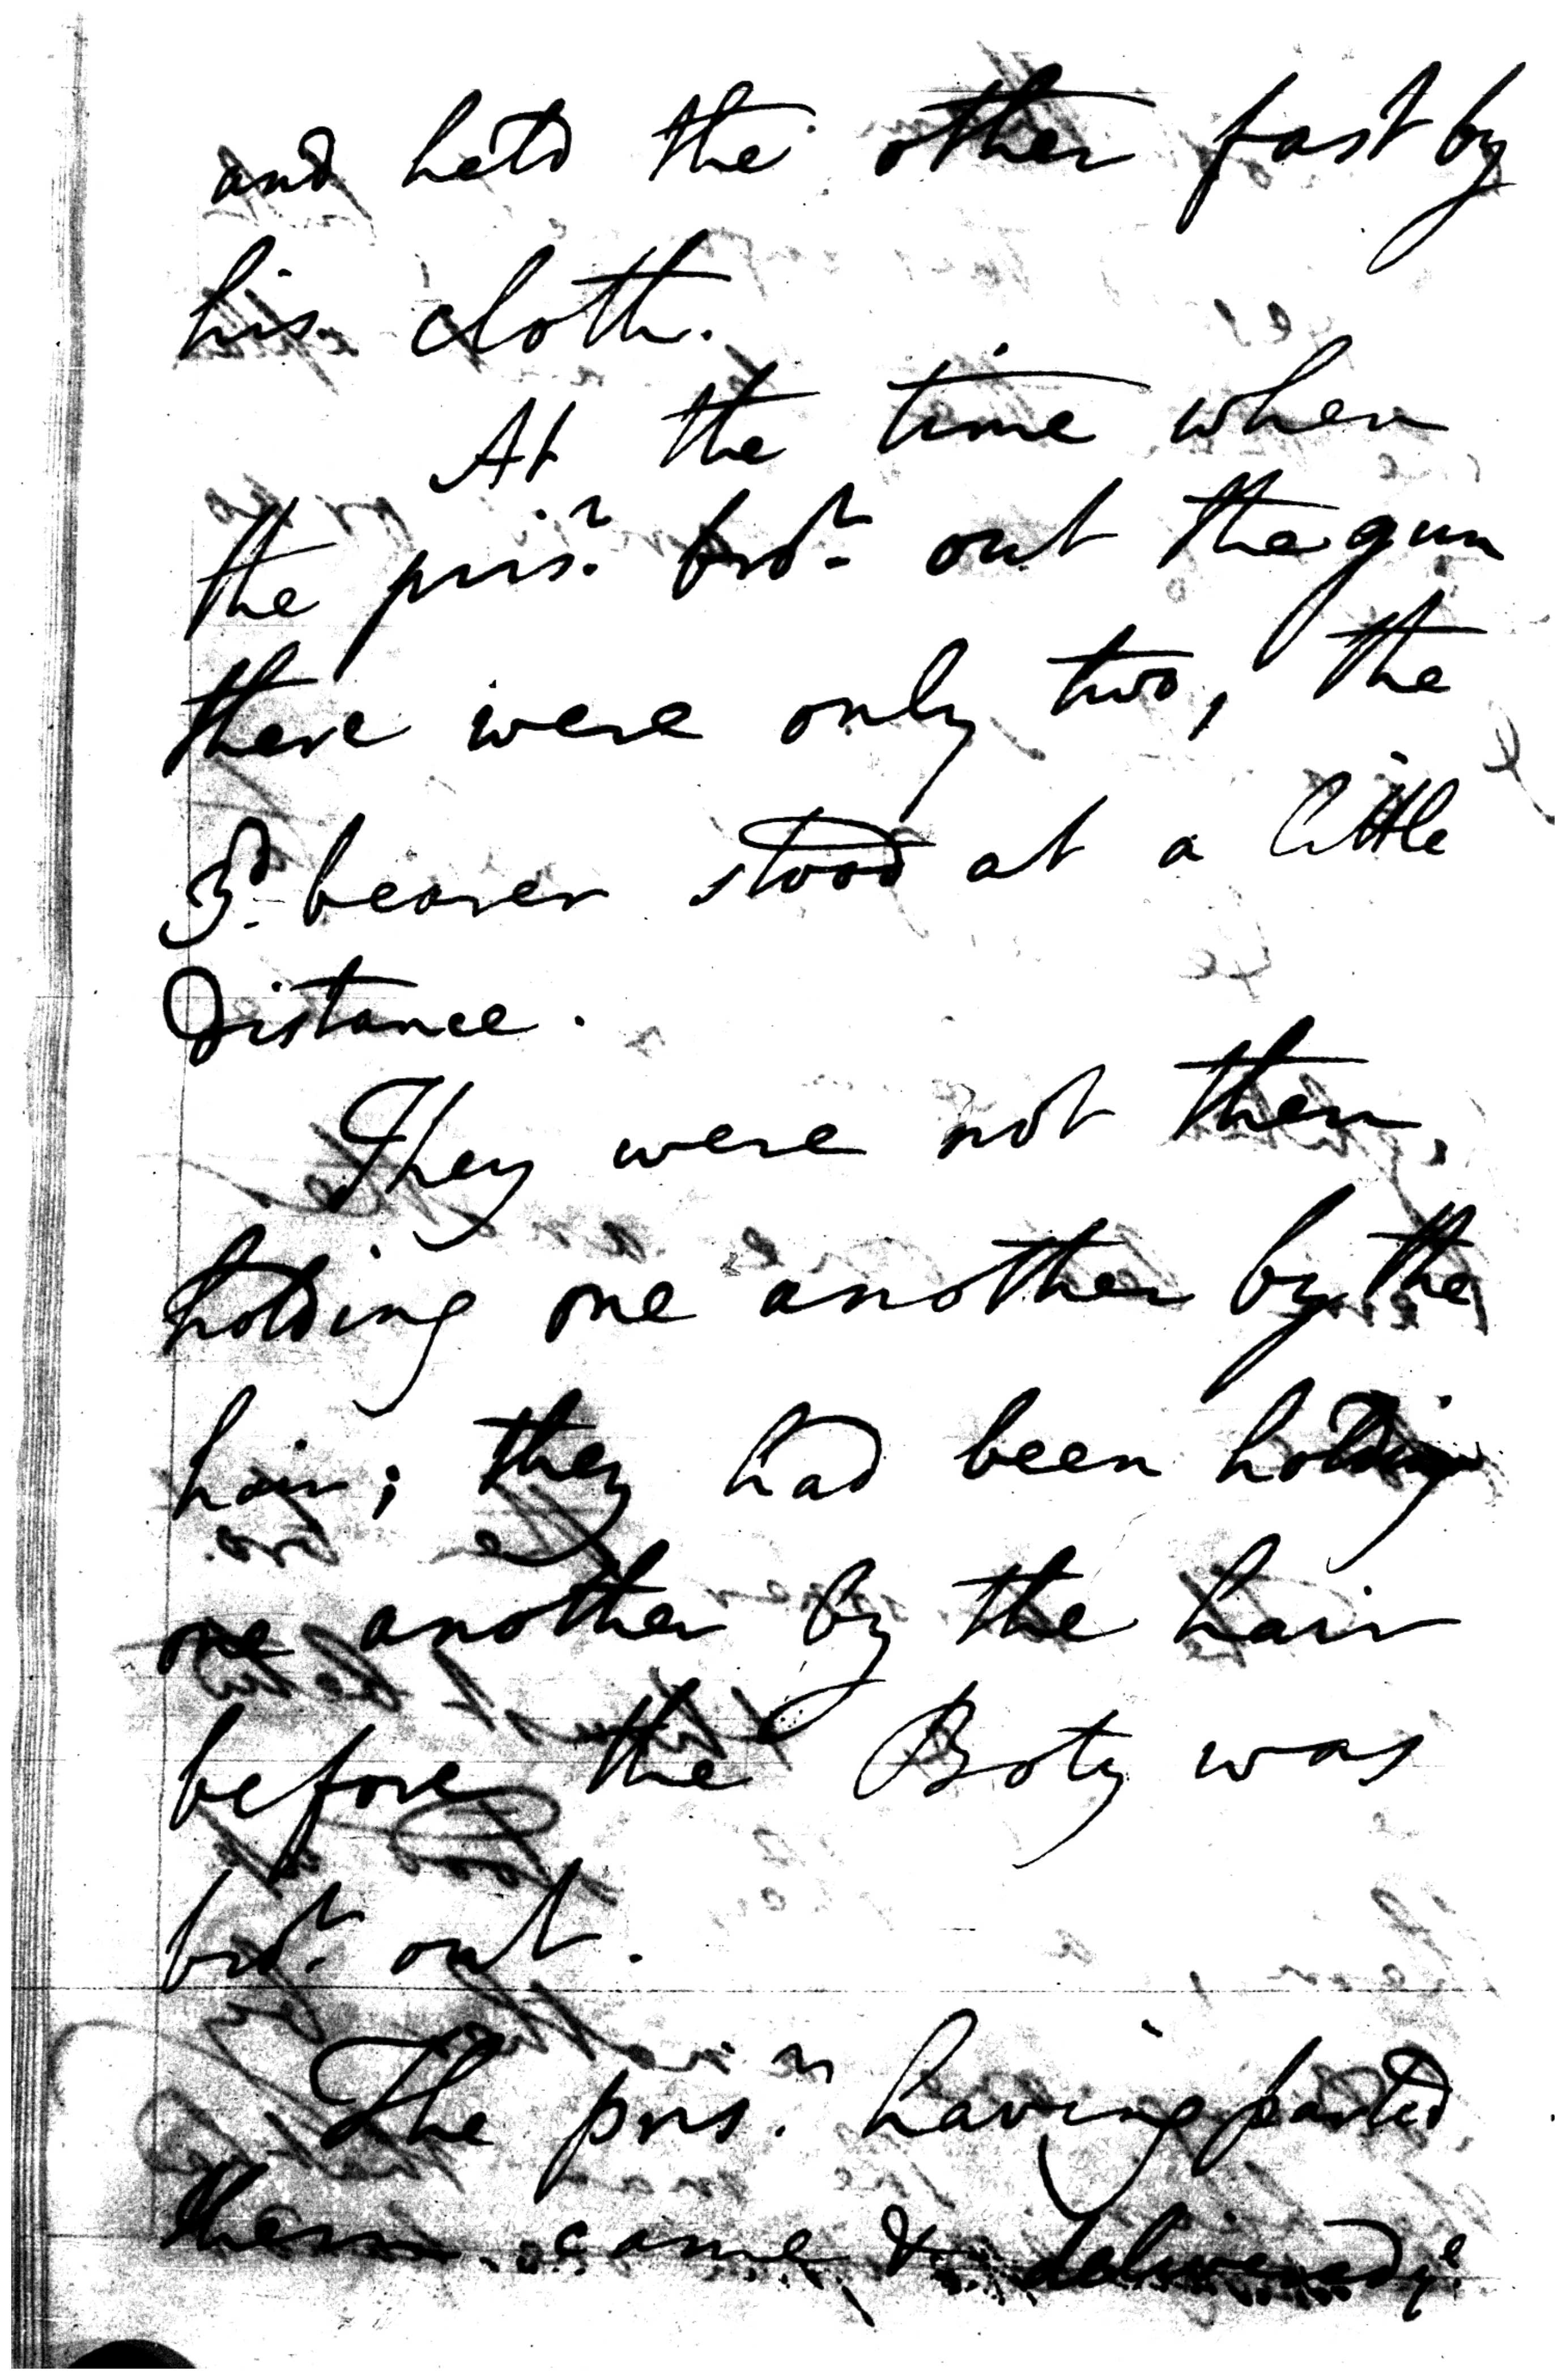 and held the other fast by
his cloth.
At the time when
the pris.r bro.t out the gun
there were only two, the
3.d bearer stood at a little
distance.
They were not then,
holding one another by the
hair; they had been holding
one another by the hair
before the Boty was
bro.t out.
The pris.r having parted
them came & delivered ye